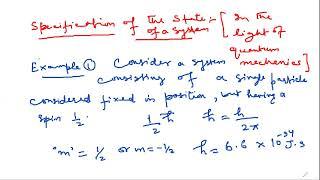 Specification of the State:- [In the
of a system light of
quantum
mechanics]
Example ① Consider a system
consisting of a single particle
considered fixed in position, but having a
spin 1/2. 1/2 ħ ħ = h/2π
'm' = 1/2 or m = -1/2 ħ = 6.6 × 10⁻³⁴ J.s